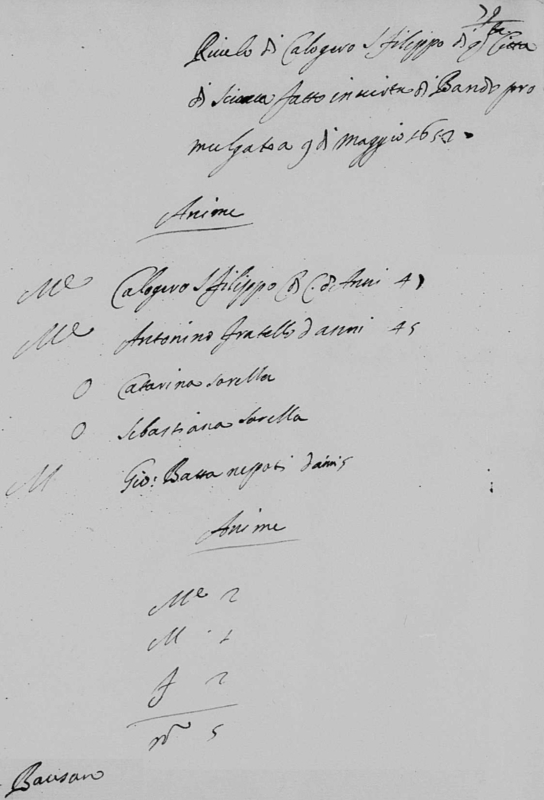 Rivelo di Calogero S Filippo di q.sta Città
di Sciacca fatto in virtù di Bando pro
mulgato a 9 di maggio 1652
Anime
Me Calogero S Filippo C. di C. di Anni 4
Me Antonino fratello d anni 45
0 Catarina sorella
0 Sebastiana sorella
M Gio: Batta nepoti d anni 5
Anime
Me 2
M 1
F 2
no 5